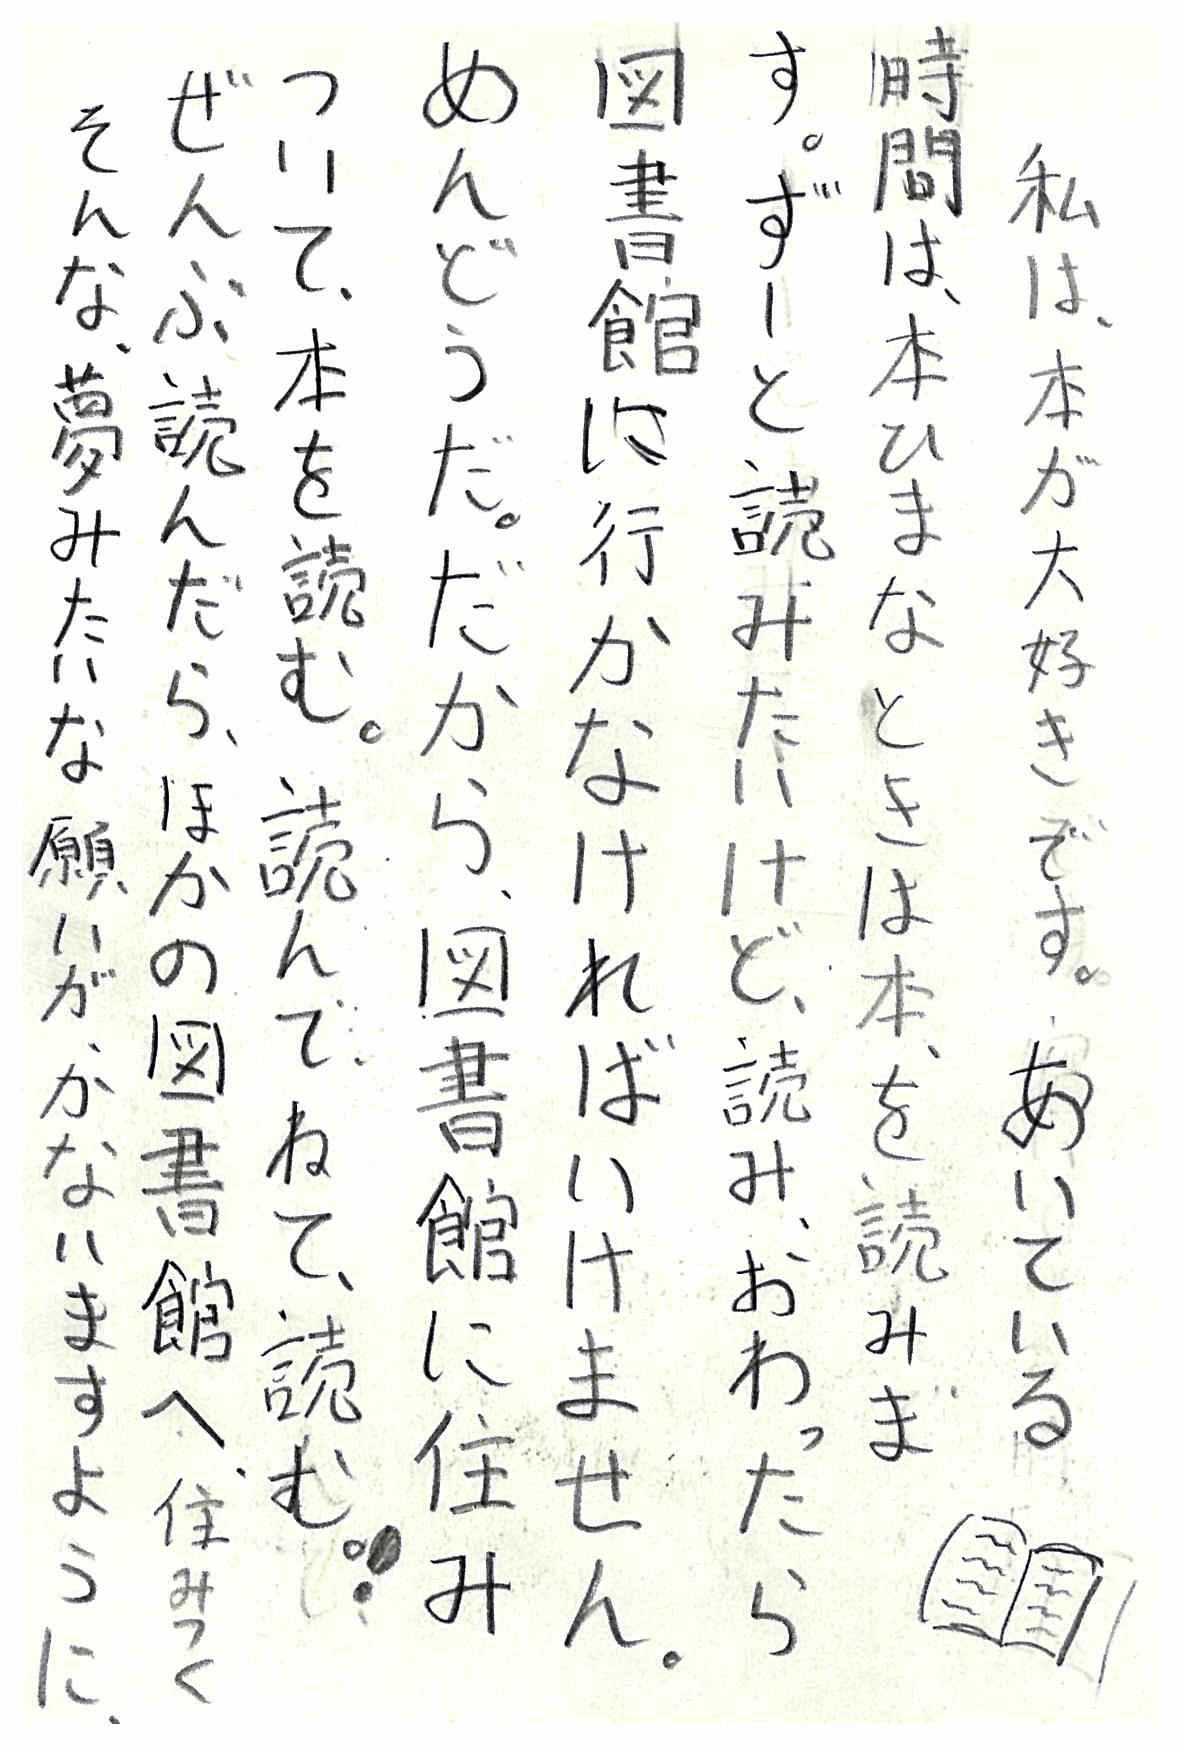 私は、本が大好きです。あいている
時間は、本ひまなときは本、を読みま
す。ずーと読みたいけど、読み、おわったら
図書館に行かなければいけません。
めんどうだ。だから、図書館に住み
ついて、本を読む。読んでねて、読む。
ぜんぶ読んだら、ほかの図書館へ、住みつく
そんな、夢みたいな願いがかないますように、